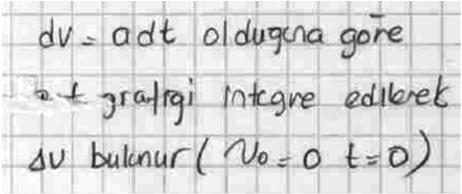 dv = adt olduguna göre
at grafigi integre edilerek
Δv bulunur ( V₀ = 0 t = 0 )